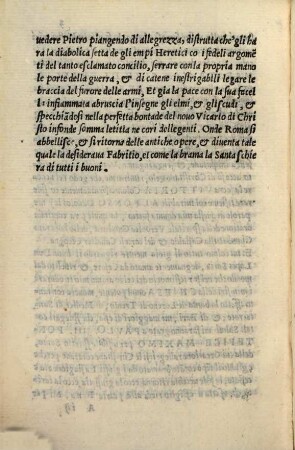 uedere Pietro piangendo di allegrezza, distrutta che gli ha
ra la diabolica setta de gli empi Heretici co i fedeli argomē
ti del tanto esclamato concilio, serrare con la propria mano
le porte della guerra, & di catene inestrigabili legare le
braccia del furore delle armi. Et gia la pace con la sua facel
la infiammata abruscia l'insegne gli elmi, & gli scudi, &
specchiādosi nella perfetta bontade del nouo Vicario di Chri
sto infonde somma letitia ne cori dellegenti. Onde Roma si
abbellisce, & si ritorna delle antiche opere, & diuenta tale
quale la desideraua Fabritio, et come la brama la Santa schie
ra di tutti i buoni.